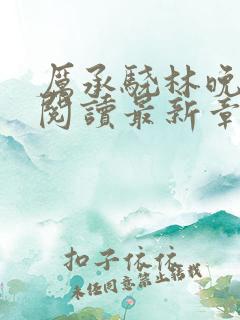 厲承驍林晚
閱讀最新章
扣子依依
未经同意禁止转载